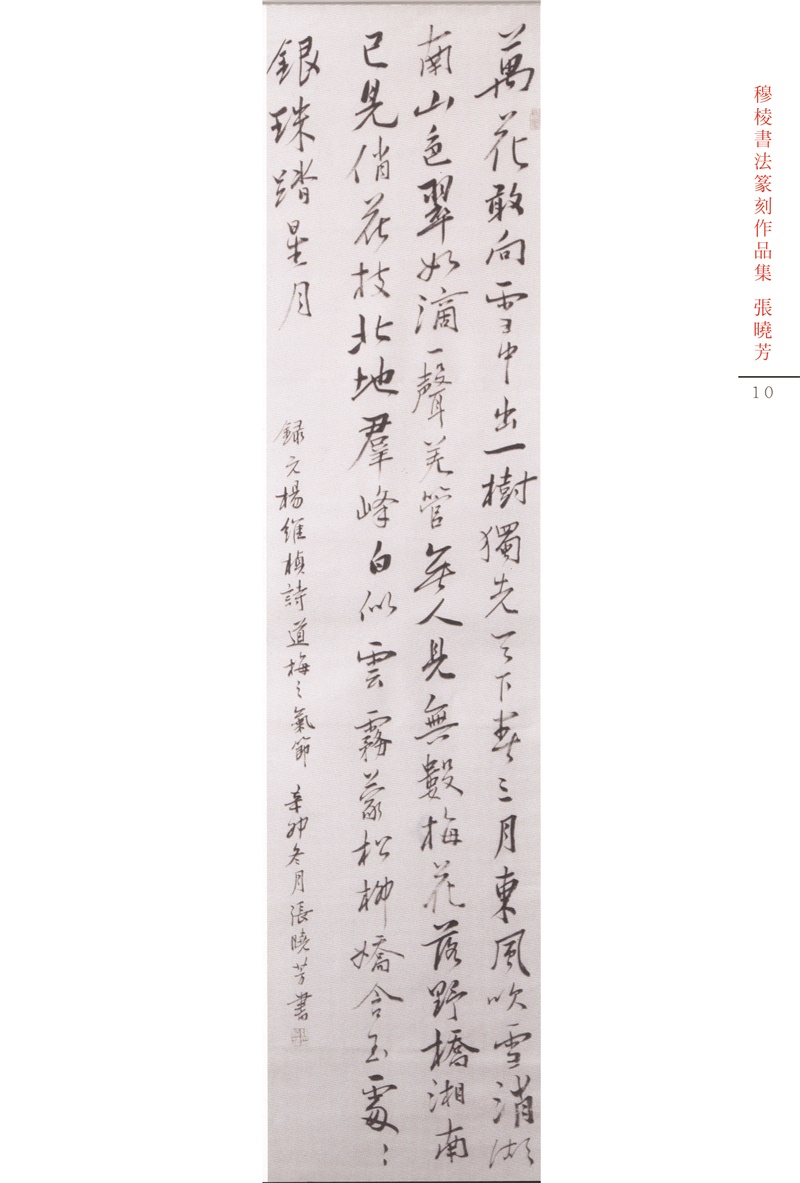 萬花敢向雪中出一樹獨先天下春三月東風吹雪消湖
南山色翠如滴一聲羌管無人見無數梅花落野橋湘南
已見俏花枝北地群峰白似雲霧蒙松柳嬌含玉露〻
銀珠踏星月
録元楊維楨詩道梅之氣節 辛卯冬月張曉芳書
穆棱書法篆刻作品集 張曉芳
10